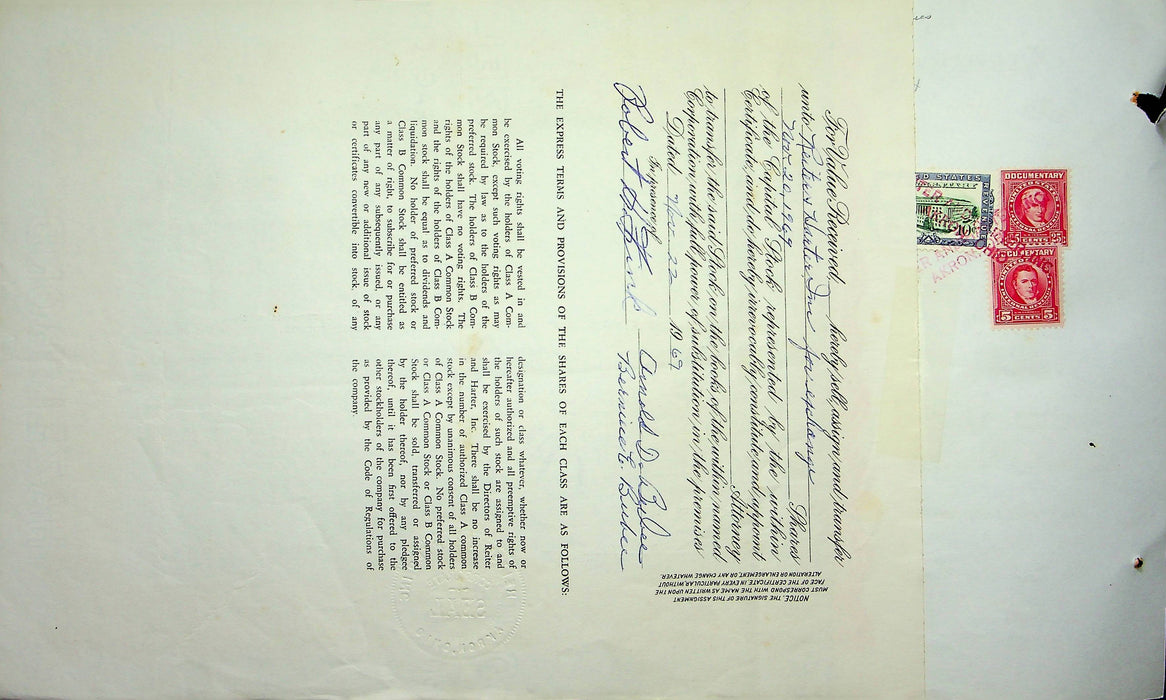 For Value Received, hereby sell, assign and transfer
unto Reiter & Harter Inc for exchange
Nov-20-1969 Shares
of the Capital Stock represented by the within
Certificate, and do hereby irrevocably constitute and appoint
Attorney
to transfer the said Stock on the books of the within named
Corporation with full power of substitution in the premises.
Dated 22 1969
In presence of
Robert Donald D.
Bernice E.
NOTICE. THE SIGNATURE OF THIS ASSIGNMENT
MUST CORRESPOND WITH THE NAME AS WRITTEN UPON THE
FACE OF THE CERTIFICATE, IN EVERY PARTICULAR, WITHOUT
ALTERATION OR ENLARGEMENT, OR ANY CHANGE WHATEVER.
THE EXPRESS TERMS AND PROVISIONS OF THE SHARES OF EACH CLASS ARE AS FOLLOWS:
All voting rights shall be vested in and
be exercised by the holders of Class A Com-
mon Stock, except such voting rights as may
be required by law as to the holders of the
preferred stock. The holders of Class B Com-
mon Stock shall have no voting rights. The
rights of the holders of Class A Common Stock
and the rights of the holders of Class B Com-
mon stock shall be equal as to dividends and
liquidation. No holder of preferred stock or
Class B Common Stock shall be entitled as
a matter of right, to subscribe for or purchase
any part of any subsequently issued, or any
part of any new or additional issue of stock
or certificates convertible into stock, of any
designation or class whatever, whether now or
hereafter authorized and all preemptive rights of
the holders of such stock are assigned to and
shall be exercised by the Directors of Reiter
and Harter, Inc. There shall be no increase
in the number of authorized Class A common
stock except by unanimous consent of all holders
of Class A Common Stock. No preferred stock
or Class A Common Stock or Class B Common
Stock shall be sold, transferred or assigned
by the holder thereof, nor by any pledgee
thereof, until it has been first offered to the
other stockholders of the company for purchase
as provided by the Code of Regulations of
the company.
DOCUMENTARY
25 CENTS 25
DOCUMENTARY
5 CENTS 5
AKRON